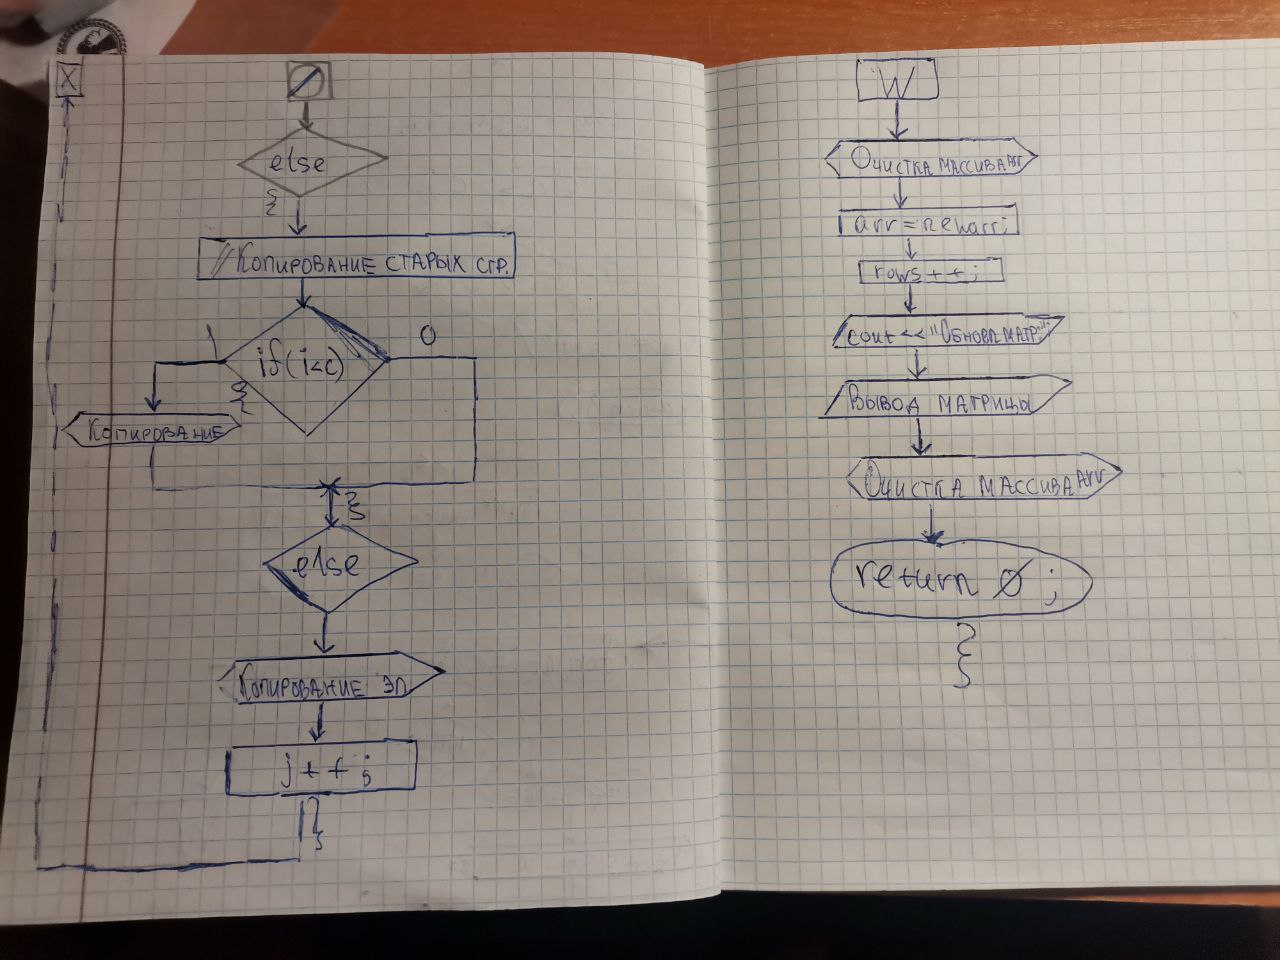 X
else
{
// Копирование старых стр.
1
0
if(i<c)
{
Копирование
}
else
Копирование эл
j++;
}
W
Очистка массива arr
arr = newarr;
rows++;
cout << "Обновл матр";
Вывод матрицы
Очистка массива arr
return 0;
}